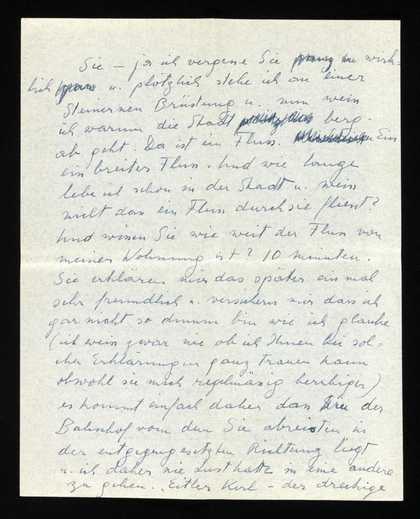 Sie – ja ich vergesse Sie wirk-
lich u. plötzlich stehe ich an einer
Steinernen Brüstung u. nun weis
ich warum die Stadt berg-
ab geht. Da ist ein Fluss. Ein
ein breiter Fluss. Und wie lange
lebe ich schon in der Stadt u. weis
nicht das ein Fluss durch sie fliest?
Und wissen Sie wie weit der Fluss von
meiner Wohnung ist? 10 Minuten.
Sie erklären mir das später einmal
sehr freundlich u. versichern mir dass ich
gar nicht so dumm bin wie ich glaube
(ich weis zwar nie ob ich Ihnen bei sol-
chen Erklärungen ganz trauen kann
obwohl sie mich regelmäsig beruhigen)
es kommt einfach daher dass der
Bahnhof von dem Sie abreisten in
der entgegengesetzten Richtung liegt
u. ich daher nie Lust hatte in eine andere
zu gehen.. Eitler Kerl – der dreckige